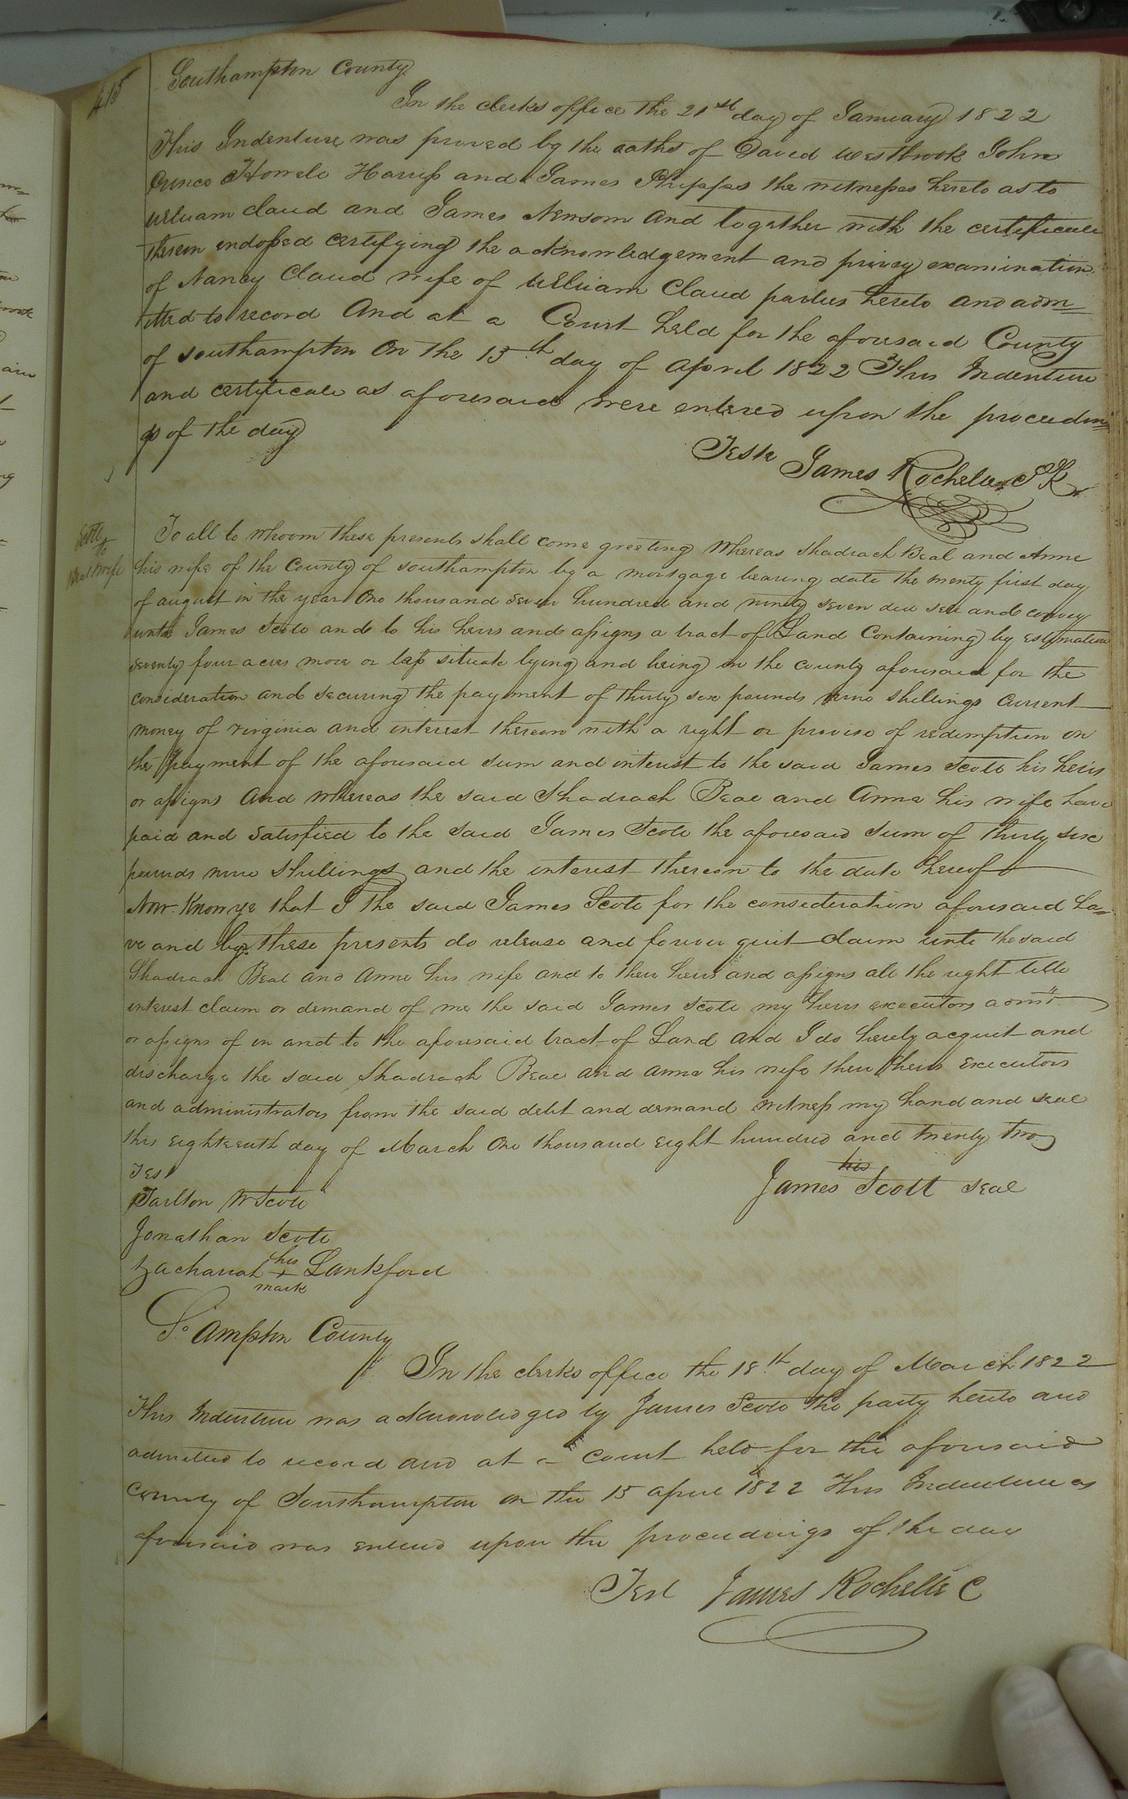 415
Southampton County
In the clerks office the 21st day of January 1822
This Indenture was proved by the oaths of David Westbrook John
Prince Howele Harriss and James Phipps the witnesses hereto as to
William Claud and James Newsom and together with the certificate
therein endorsed certifying the acknowledgement and privy examination
of Nancy Claud wife of William Claud parties hereto and adm=
itted to record And at a Court held for the aforesaid County
of Southampton On the 15th day of April 1822 This Indenture
and certificate as aforesaid were entered upon the proceedin
gs of the day
Teste James Rochelle
Scott
to
Beal & wife
To all to whoom these presents shall come greeting Whereas Shadrach Beal and Anne
his wife of the County of Southampton by a mortgage bearing date the twenty first day
of august in the year One thousand seven hundred and ninety seven did sell and convey
unto James Scott and to his heirs and assigns a tract of Land Containing by estymation
seventy four acres more or less situate lying and being in the county aforesaid for the
consideration and securing the payment of thirty six pounds nine shillings current
money of virginia and interest thereon with a right or proviso of redemption on
the payment of the aforesaid sum and interest to the said James Scott his heirs
or assigns And whereas the said Shadrach Beal and Anne his wife have
paid and satisfied to the said James Scott the aforesaid sum of thirty six
pounds nine shillings and the interest thereon to the date hereof
Now Know ye that I the said James Scott for the consideration aforesaid ha=
ve and by these presents do release and forever quit claim unto the said
Shadrach Beal and Anne his wife and to their heirs and assigns all the right title
interest claim or demand of me the said James Scott my heirs executors admrs
or assigns of in and to the aforesaid tract of Land and I do hereby acquit and
discharge the said Shadrach Beal and Anne his wife their heirs executors
and administrators from the said debt and demand witness my hand and seal
this eighteenth day of March One thousand eight hundred and twenty two
Test
his
James Scott seal
Tarlton W Scott
Jonathan Scott
his
Zachariah + Lankford
mark
So Ampton County
In the clerks office the 18th day of March 1822
This Indenture was acknowledged by James Scott the party hereto and
admitted to record and at a court held for the aforesaid
county of Southampton on the 15 april 1822 This Indenture as
aforesaid was entered upon the proceedings of the day
Test James Rochelle C